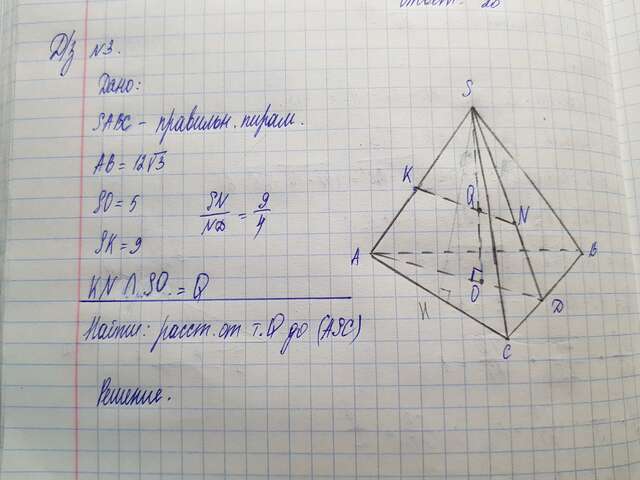 ответ: 20
Д/з №3.
Дано:
SABC - правильн. пирам.
AB = 12√3
SO = 5
SN/ND = 9/4
SK = 9
KN ∩ SO = Q
Найти: расст. от т. Q до (ASC)
Решение.
S
K
Q
N
A
B
O
H
D
C